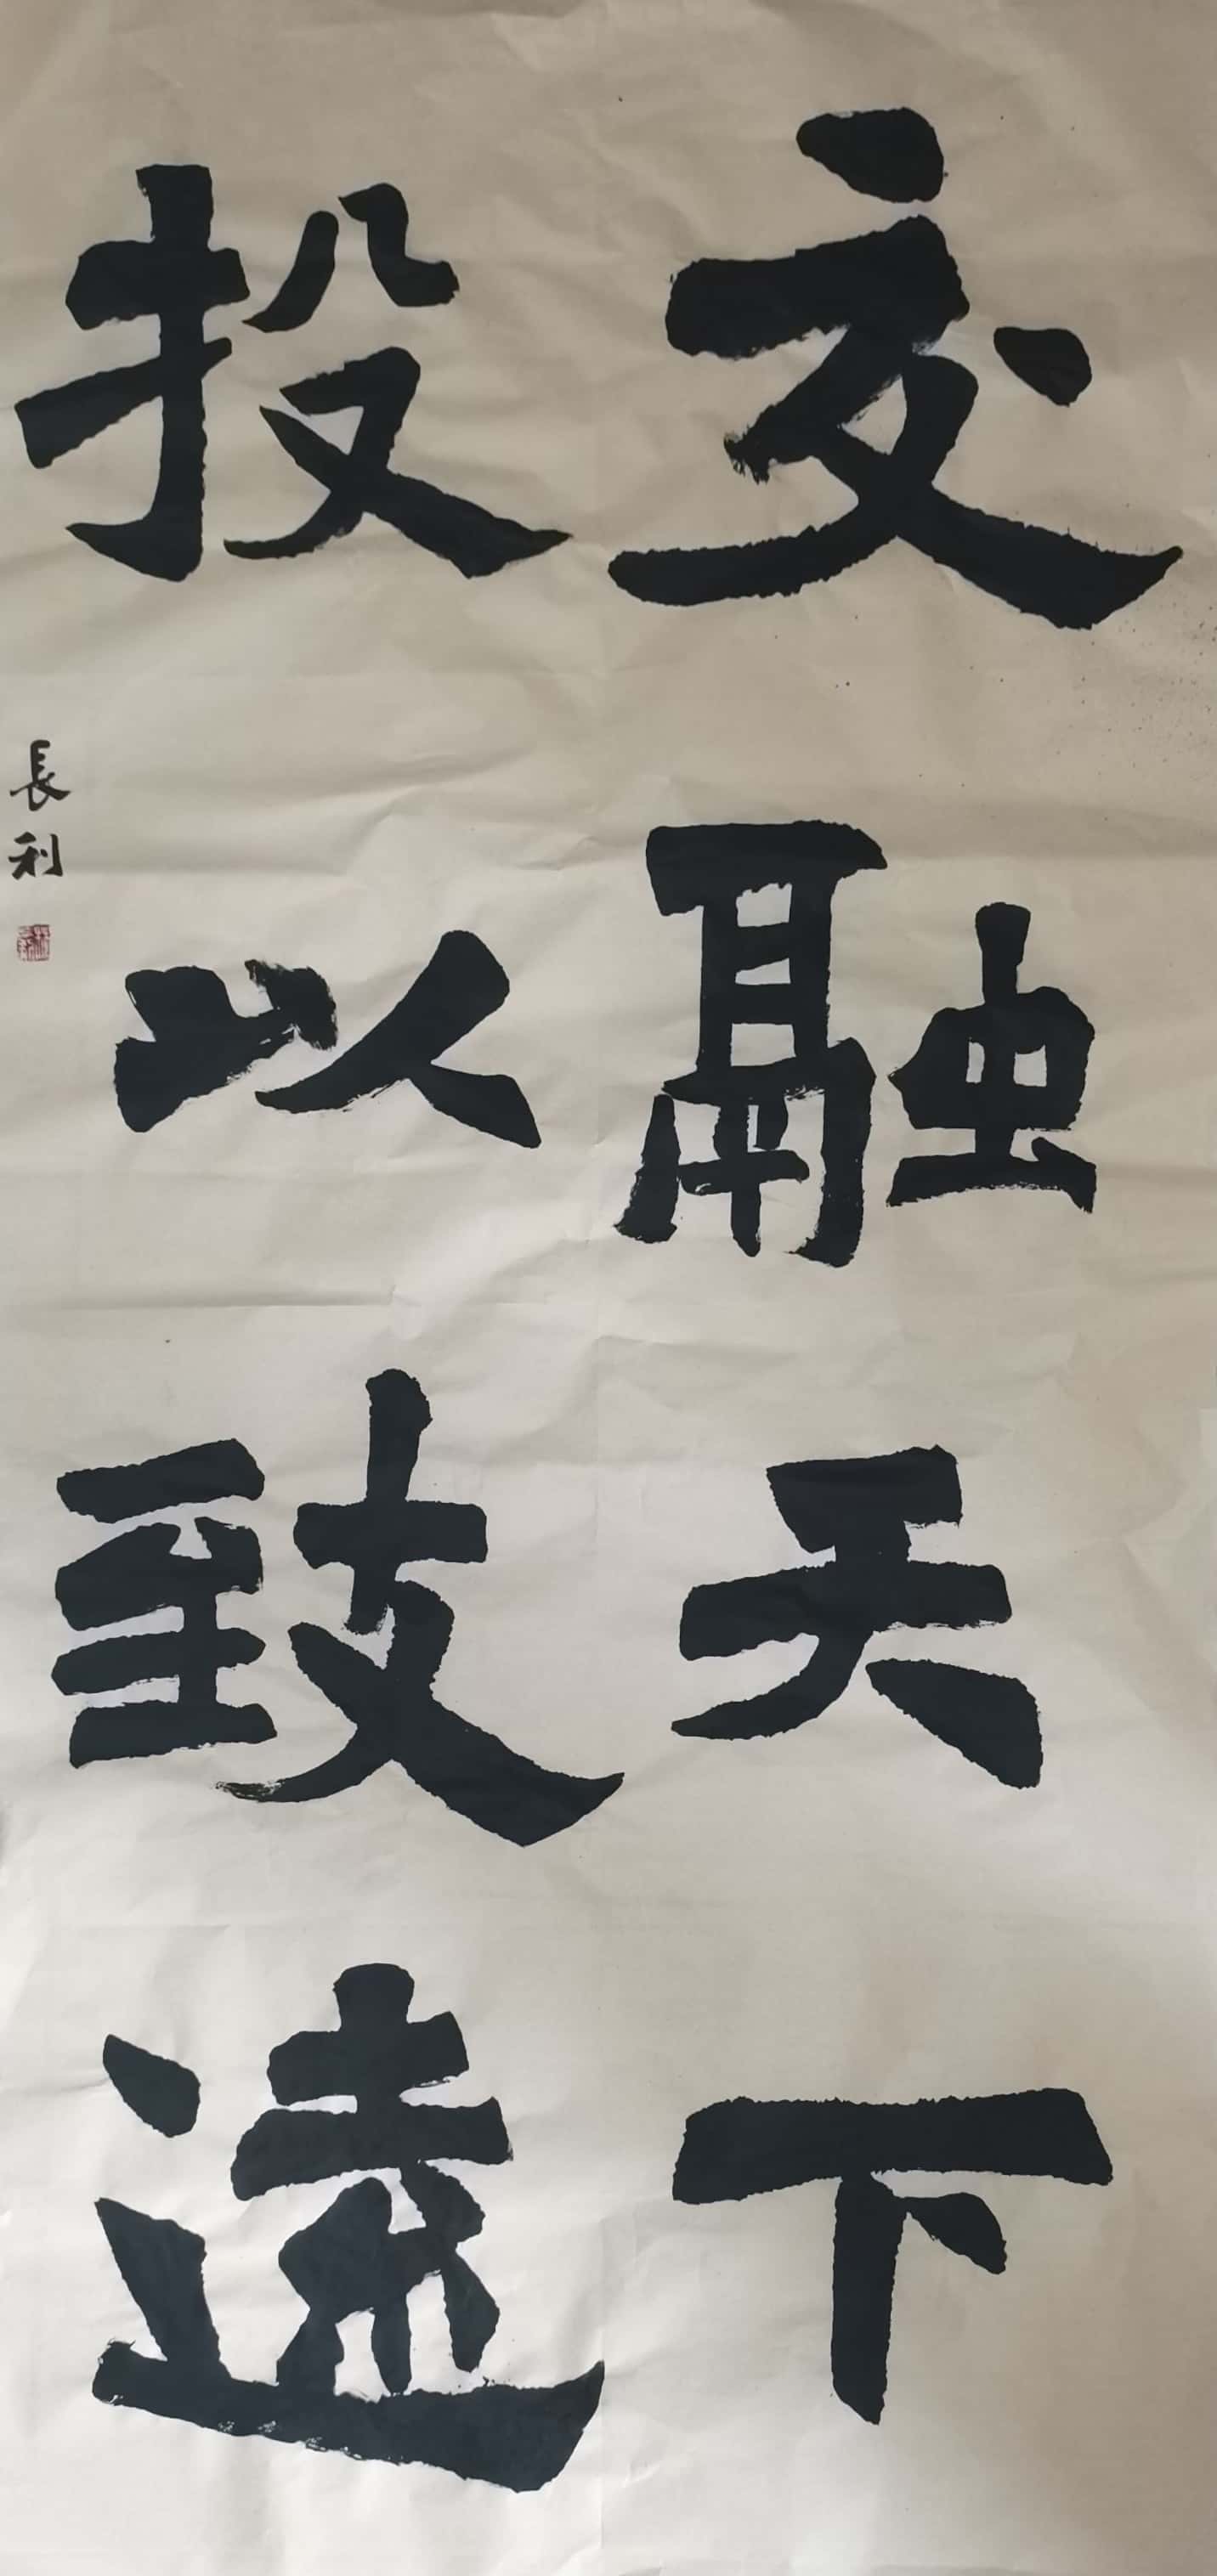 交融天下
投以致遠
長利